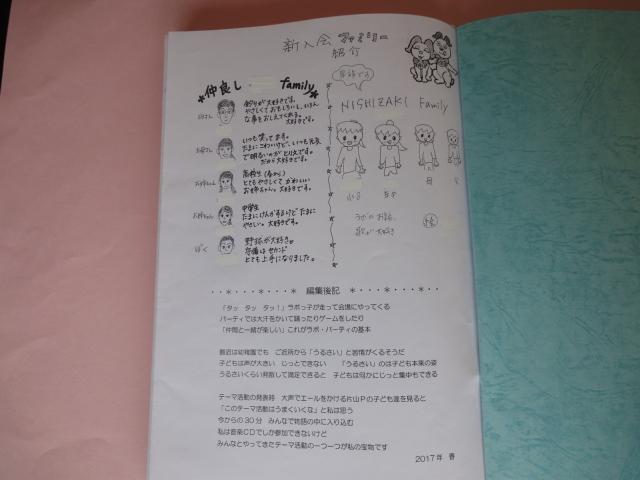 新入会 ファミリー
紹介
*仲良し family*
釣りが大好きです。
やさしくておもしろいし、いろん
な事をおしえてくれる。
大好きです。
お母さん
いつも笑ってます。
たまにこわいけど、いつも元気
で明るいのがとりえです。
だから大好きです。
お姉ちゃん
高校生(春から)
とてもやさしくてかわいい
お姉ちゃん。大好きです。
お姉ちゃん
中学生
たまにけんかするけどたまに
やさしい。大好きです。
ぼく
野球が大好き。
守備はセカンド
とても上手になりました。
NISHIZAKI Family
母
歌が大好き
・・*・・・*・・・* 編集後記 *・・・*・・・*・・
「タッ タッ タッ!」ラボっ子が走って会場にやってくる
パーティでは大汗をかいて踊ったりゲームをしたり
「仲間と一緒が楽しい」これがラボ・パーティの基本
最近は幼稚園でも ご近所から「うるさい」と苦情がくるそうだ
子どもは声が大きい じっとできない 「うるさい」のは子ども本来の姿
うるさいくらい発散して満足できると 子どもは何かにじっと集中もできる
テーマ活動の発表時 大声でエールをかける片山Pの子ども達を見ると
「このテーマ活動はうまくいくな」と私は思う
今からの30分 みんなで物語の中に入り込む
私は音楽CDでしか参加できないけど
みんなとやってきたテーマ活動の一つ一つが私の宝物です
2017年 春